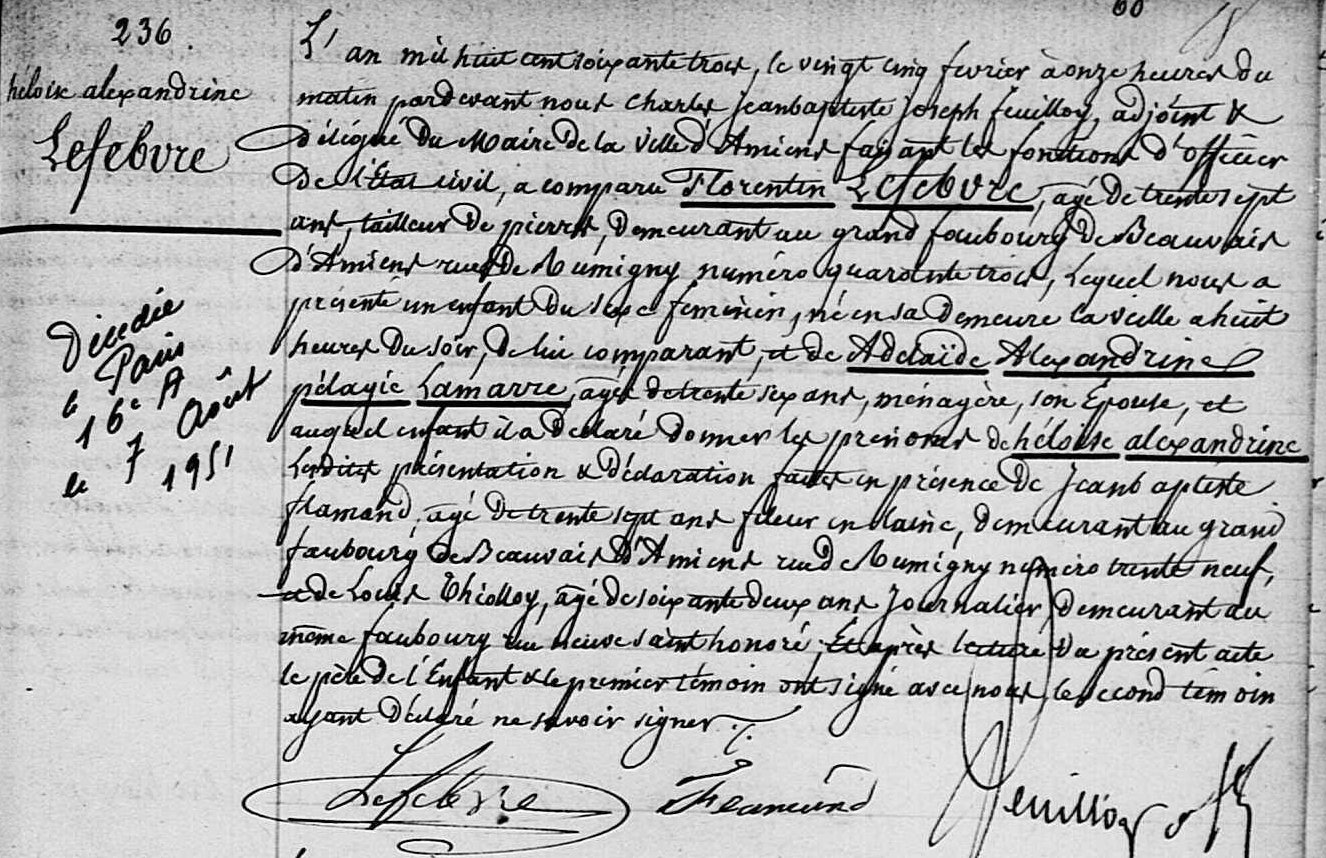 60
236
héloise alexandrine
Lefebvre
Décédée
à Paris
16e A
le 7 Août
1951
L'an mil huit cent soixante trois, le vingt cinq fevrier à onze heures du
matin pardevant nous Charles Jeanbaptiste Joseph Feuilloy, adjoint &
délégué du Maire de la Ville d'Amiens faisant les fonctions d'officier
de l'Etat civil, a comparu Florentin Lefebvre, agé de trente sept
ans, tailleur de pierres, demeurant au grand faubourg de Beauvais
d'Amiens rue de Rumigny numéro quarante trois, Lequel nous a
présenté un enfant du sexe féminin, né en sa demeure la veille a huit
heures du soir, de lui comparant, et de Adelaïde Alexandrine
pélagie Lamarre, agée de trente six ans, ménagère, son Epouse, et
auquel enfant il a déclaré donner les prénoms de héloise alexandrine
Lesdites présentation & déclaration faites en présence de Jeanbaptiste
flamand, agé de trente sept ans fileur en laine, demeurant au grand
faubourg de Beauvais d'Amiens rue de Rumigny numéro trente neuf,
et de Louis Thiolloy, agé de soixante deux ans Journalier, demeurant au
même faubourg rue neuve saint honoré, Et après lecture du présent acte
le père de l'Enfant & le premier témoin ont signé avec nous, le second témoin
ayant déclaré ne savoir signer ./.
Lefebvre
Flamand
feuilloy